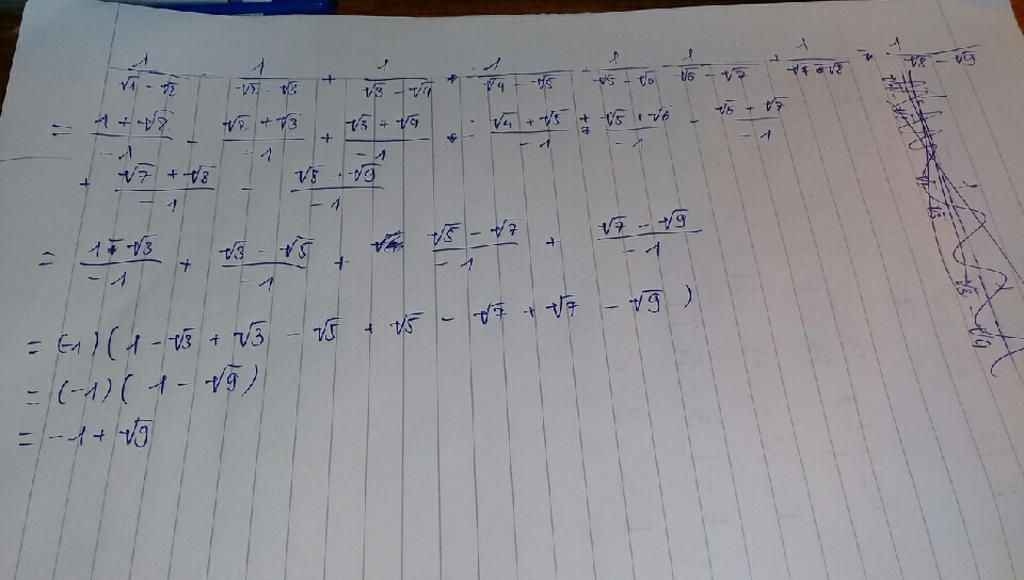 1/(√1 - √2) - 1/(√2 - √3) + 1/(√3 - √4) - 1/(√4 - √5) + 1/(√5 - √6) - 1/(√6 - √7) + 1/(√7 - √8) - 1/(√8 - √9)
= (1 + √2)/(-1) - (√2 + √3)/(-1) + (√3 + √4)/(-1) - (√4 + √5)/(-1) + (√5 + √6)/(-1) - (√6 + √7)/(-1)
+ (√7 + √8)/(-1) - (√8 + √9)/(-1)
= (1 - √3)/(-1) + (√3 - √5)/(-1) + (√5 - √7)/(-1) + (√7 - √9)/(-1)
= (-1)(1 - √3 + √3 - √5 + √5 - √7 + √7 - √9)
= (-1)(1 - √9)
= -1 + √9